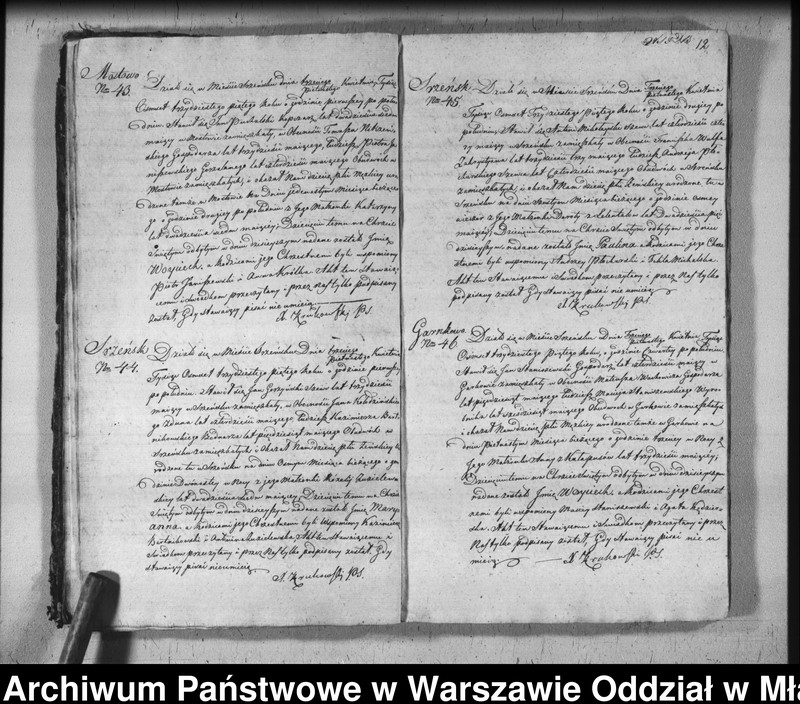 12
Mostowo
No 43.
Działo się w Mieście Szreńsku dnia trzeciego Kwietnia, Tysiąc
piętnastego
Ośmset trzydziestego piątego Roku o godzinie pierwszej po połu
dniu Stawił się Jan Kepczącz, lat dwadzieścia siedm
maiący w Mostowie zamieszkały, w Obecności Tomasza
skiego Gospodarza lat trzydzieści maiącego, tudzież Piotra Ja
niszewskiego lat czterdzieści maiącego Obudwóch w
Mostowie zamieszkałych, i okazał Nam dziecię płci Męskiey uro
dzone tamże w Mostowie na dniu jedenastym Miesiąca bieżące
go o godzinie drugiey po południu z Jego Małżonki Katarzyny
lat dwadzieścia siedm maiącey; Dziecięciu temu na Chrzcie
Świętym odbytym w dniu dzisieyszym nadane zostało Jmie
Woyciech, a Rodzicami jego Chrzestnemi byli wspomniony
Piotr Janiszewski i Anna Kozłka. Akt ten Stawaią
cemu i świadkom przeczytany i przez Nas tylko podpisany
został Gdy Stawaiący pisać nie umieią
A. Krukowski
Szreńsk
No 44.
Działo się w Mieście Szreńsku Dnia trzeciego Kwietnia
piętnastego
Tysiąc Ośmset trzydziestego piątego Roku o godzinie pierwszej
po południu Stawił się Jan Gorzyński Szewc lat trzydzieści
maiący w Szreńsku zamieszkały, w Obecności Jana
go Zduna lat czterdzieści maiącego, tudzież Kazimierza Bart
nikowskiego Bednarza lat pięćdziesiąt maiącego Obudwóch w
Szreńsku zamieszkałych i okazał Nam dziecię płci Żeńskiey u
rodzone tu w Szreńsku na dniu Osmym Miesiąca bieżącego o go
dzinie dwunastey w Nocy z jego Małżonki
skiey lat dwadzieścia siedm maiącey; Dziecięciu temu na Chrzcie
Świętym odbytym w dniu dzisieyszym nadane zostało Jmie Mary
anna a Rodzicami jego Chrzestnemi byli Wspomniony Kazimierz
i Antonina. Akt ten Stawaiącemu i
Świadkom przeczytany i przez Nas tylko podpisany został Gdy
Stawaiący pisać nieumieią
A. Krukowski
Szreńsk
No 45.
Działo się w Mieście Szreńsku Dnia Trzeciego Kwietnia
piętnastego
Tysiąc Ośmset Trzydziestego Piątego Roku o godzinie drugiey po
południu Stawił się Antoni Michalski Szewc lat czterdzieści czte
ry maiący w Szreńsku zamieszkały w Obecności Franciszka Wulfa
Zakrystyana lat trzydzieści trzy maiącego tudzież Andrzeja
skiego Szewca lat Czterdzieści maiącego Obudwóch w Szreńsku
zamieszkałych; i okazał Nam dziecię płci Żeńskiey urodzone tu w
Szreńsku na dniu Szóstym Miesiąca bieżącego o godzinie osmey
wieczór z Jego Małżonki Doroty z lat dwadzieścia pięć
maiącey; Dziecięciu temu na Chrzcie Świętym odbytym w dniu
dzisieyszym nadane zostało Jmie Paulina a Rodzicami jego Chrze
stnemi byli wspomniony Andrzey i Tekla Michalska
Akt ten Stawaiącemu i Świadkom przeczytany i przez Nas tylko
podpisany został Gdy Stawaiący pisać nie umieią
A. Krukowski
Garnkowo
No 46.
Działo się w Mieście Szreńsku Dnia Trzeciego Kwietnia Tysiąc
piętnastego
Ośmset trzydziestego Piątego Roku, o godzinie Czwartey po południu
Stawił się Jan Staniszewski Gospodarz lat czterdzieści maiący w
Garkowie zamieszkały w Obecności Mateusza Gospodarza
lat pięćdziesiąt maiącego tudzież Macieja Staniszewskiego Wyro
bnika lat sześćdziesiąt maiącego Obudwóch w Garkowie zamieszkałych
i okazał Nam dziecię płci Męskiey urodzone tamże w Garkowie na
dniu Piętnastym Miesiąca bieżącego o godzinie trzeciey w Nocy z
Jego Małżonki Anny z lat trzydzieści maiącey;
Dziecięciu temu na Chrzcie Świętym odbytym w dniu dzisieyszym
nadane zostało Jmie Woyciech, a Rodzicami jego Chrzest
nemi byli wspomniony Maciey Staniszewski i Agata
ska. Akt ten Stawaiącemu i Świadkom przeczytany i przez
Nas tylko podpisany został Gdy Stawaiący pisać nie u
mieią
A. Krukowski
Archiwum Państwowe w Warszawie Oddział w Mła